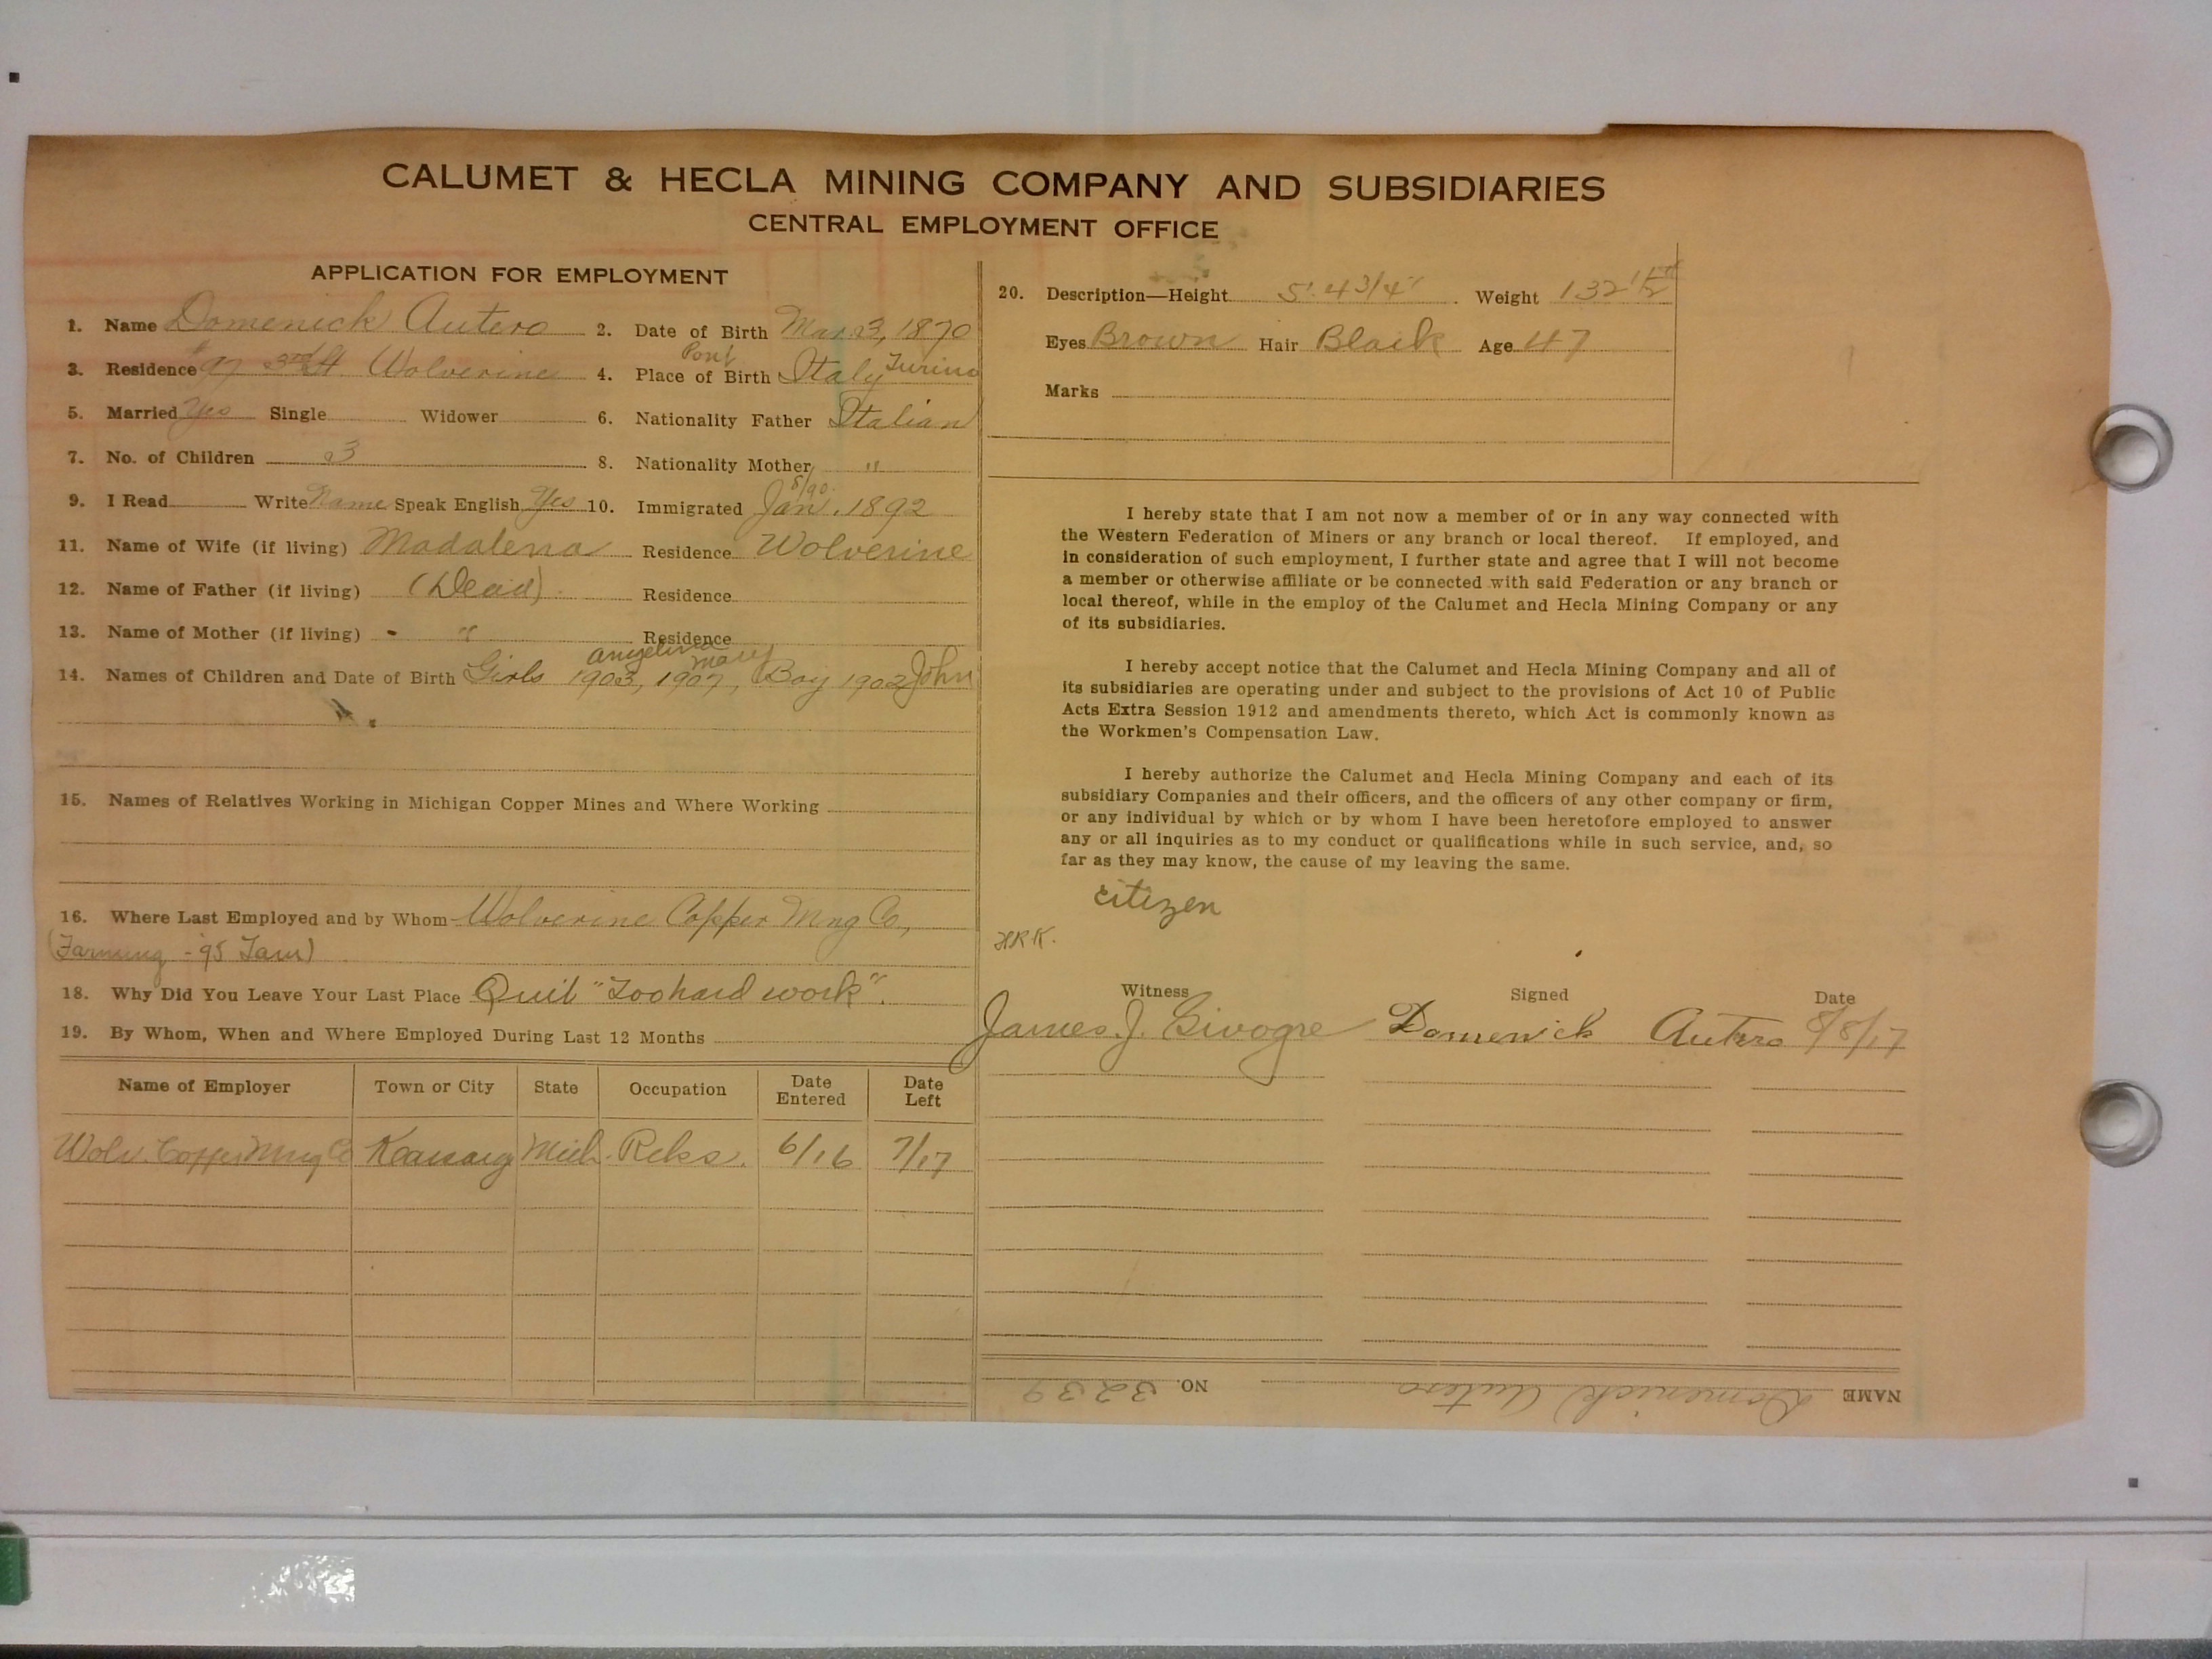 CALUMET & HECLA MINING COMPANY AND SUBSIDIARIES
CENTRAL EMPLOYMENT OFFICE
APPLICATION FOR EMPLOYMENT
1. Name Domenick Autero 2. Date of Birth Mar. 3, 1870
3. Residence #97 3rd St. Wolverine 4. Place of Birth Italy Turino
Pont
5. Married Yes Single Widower 6. Nationality Father Italian
7. No. of Children 3 8. Nationality Mother "
9. I Read Write Name Speak English Yes 10. Immigrated Jan. 1892
8/90.
11. Name of Wife (if living) Madalena Residence Wolverine
12. Name of Father (if living) (Dead). Residence
13. Name of Mother (if living) - " Residence
Angelina Mary
14. Names of Children and Date of Birth Girls 1903, 1907, Boy 1902 John
15. Names of Relatives Working in Michigan Copper Mines and Where Working
16. Where Last Employed and by Whom Wolverine Copper Mng Co.,
(Farming - 95
18. Why Did You Leave Your Last Place Quit "Too hard work".
19. By Whom, When and Where Employed During Last 12 Months
Name of Employer Town or City State Occupation Date Entered Date Left
Wolv. Copper Mng Co Kearsarg Mich. 6/16 7/17
20. Description—Height 5' 4 3/4" Weight 132 1/2
Eyes Brown Hair Black Age 47
Marks
I hereby state that I am not now a member of or in any way connected with
the Western Federation of Miners or any branch or local thereof. If employed, and
in consideration of such employment, I further state and agree that I will not become
a member or otherwise affiliate or be connected with said Federation or any branch or
local thereof, while in the employ of the Calumet and Hecla Mining Company or any
of its subsidiaries.
I hereby accept notice that the Calumet and Hecla Mining Company and all of
its subsidiaries are operating under and subject to the provisions of Act 10 of Public
Acts Extra Session 1912 and amendments thereto, which Act is commonly known as
the Workmen's Compensation Law.
I hereby authorize the Calumet and Hecla Mining Company and each of its
subsidiary Companies and their officers, and the officers of any other company or firm,
or any individual by which or by whom I have been heretofore employed to answer
any or all inquiries as to my conduct or qualifications while in such service, and, so
far as they may know, the cause of my leaving the same.
citizen
HRK.
Witness Signed Date
James J. Givogre Domenick Autero 8/8/17
NAME Domenick Autero NO. 3239